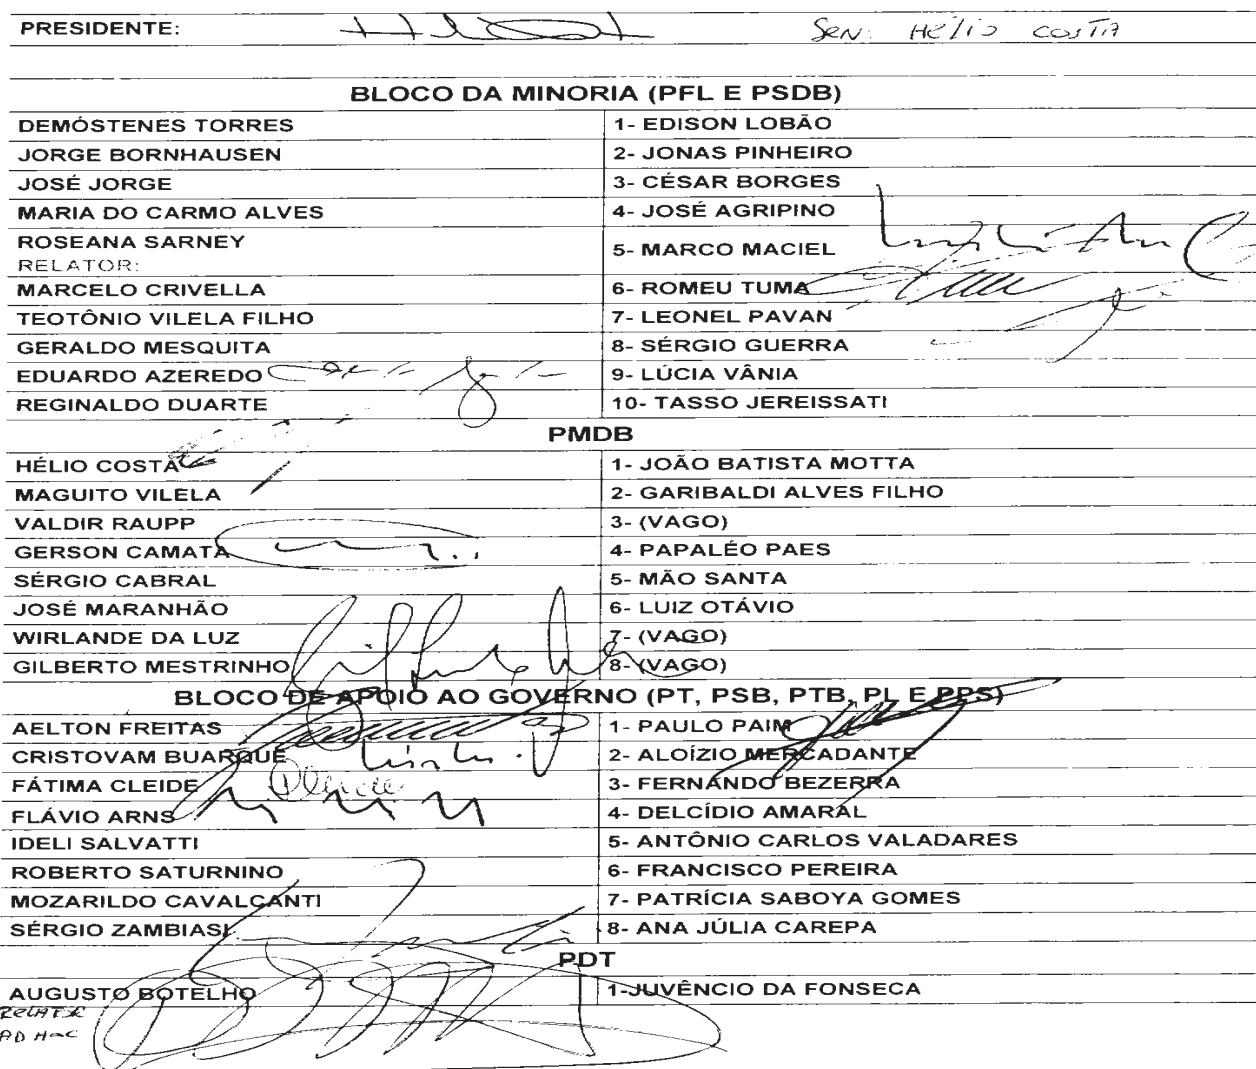 PRESIDENTE: SEN: HÉLIO COSTA
BLOCO DA MINORIA (PFL E PSDB)
DEMÓSTENES TORRES 1- EDISON LOBÃO
JORGE BORNHAUSEN 2- JONAS PINHEIRO
JOSÉ JORGE 3- CÉSAR BORGES
MARIA DO CARMO ALVES 4- JOSÉ AGRIPINO
ROSEANA SARNEY 5- MARCO MACIEL
RELATOR:
MARCELO CRIVELLA 6- ROMEU TUMA
TEOTÔNIO VILELA FILHO 7- LEONEL PAVAN
GERALDO MESQUITA 8- SÉRGIO GUERRA
EDUARDO AZEREDO 9- LÚCIA VÂNIA
REGINALDO DUARTE 10- TASSO JEREISSATI
PMDB
HÉLIO COSTA 1- JOÃO BATISTA MOTTA
MAGUITO VILELA 2- GARIBALDI ALVES FILHO
VALDIR RAUPP 3- (VAGO)
GERSON CAMATA 4- PAPALÉO PAES
SÉRGIO CABRAL 5- MÃO SANTA
JOSÉ MARANHÃO 6- LUIZ OTÁVIO
WIRLANDE DA LUZ 7- (VAGO)
GILBERTO MESTRINHO 8- (VAGO)
BLOCO DE APOIO AO GOVERNO (PT, PSB, PTB, PL E PPS)
AELTON FREITAS 1- PAULO PAIM
CRISTOVAM BUARQUE 2- ALOÍZIO MERCADANTE
FÁTIMA CLEIDE 3- FERNANDO BEZERRA
FLÁVIO ARNS 4- DELCÍDIO AMARAL
IDELI SALVATTI 5- ANTÔNIO CARLOS VALADARES
ROBERTO SATURNINO 6- FRANCISCO PEREIRA
MOZARILDO CAVALCANTI 7- PATRÍCIA SABOYA GOMES
SÉRGIO ZAMBIASI 8- ANA JÚLIA CAREPA
PDT
AUGUSTO BOTELHO 1-JUVÊNCIO DA FONSECA
RELATOR
AD HOC